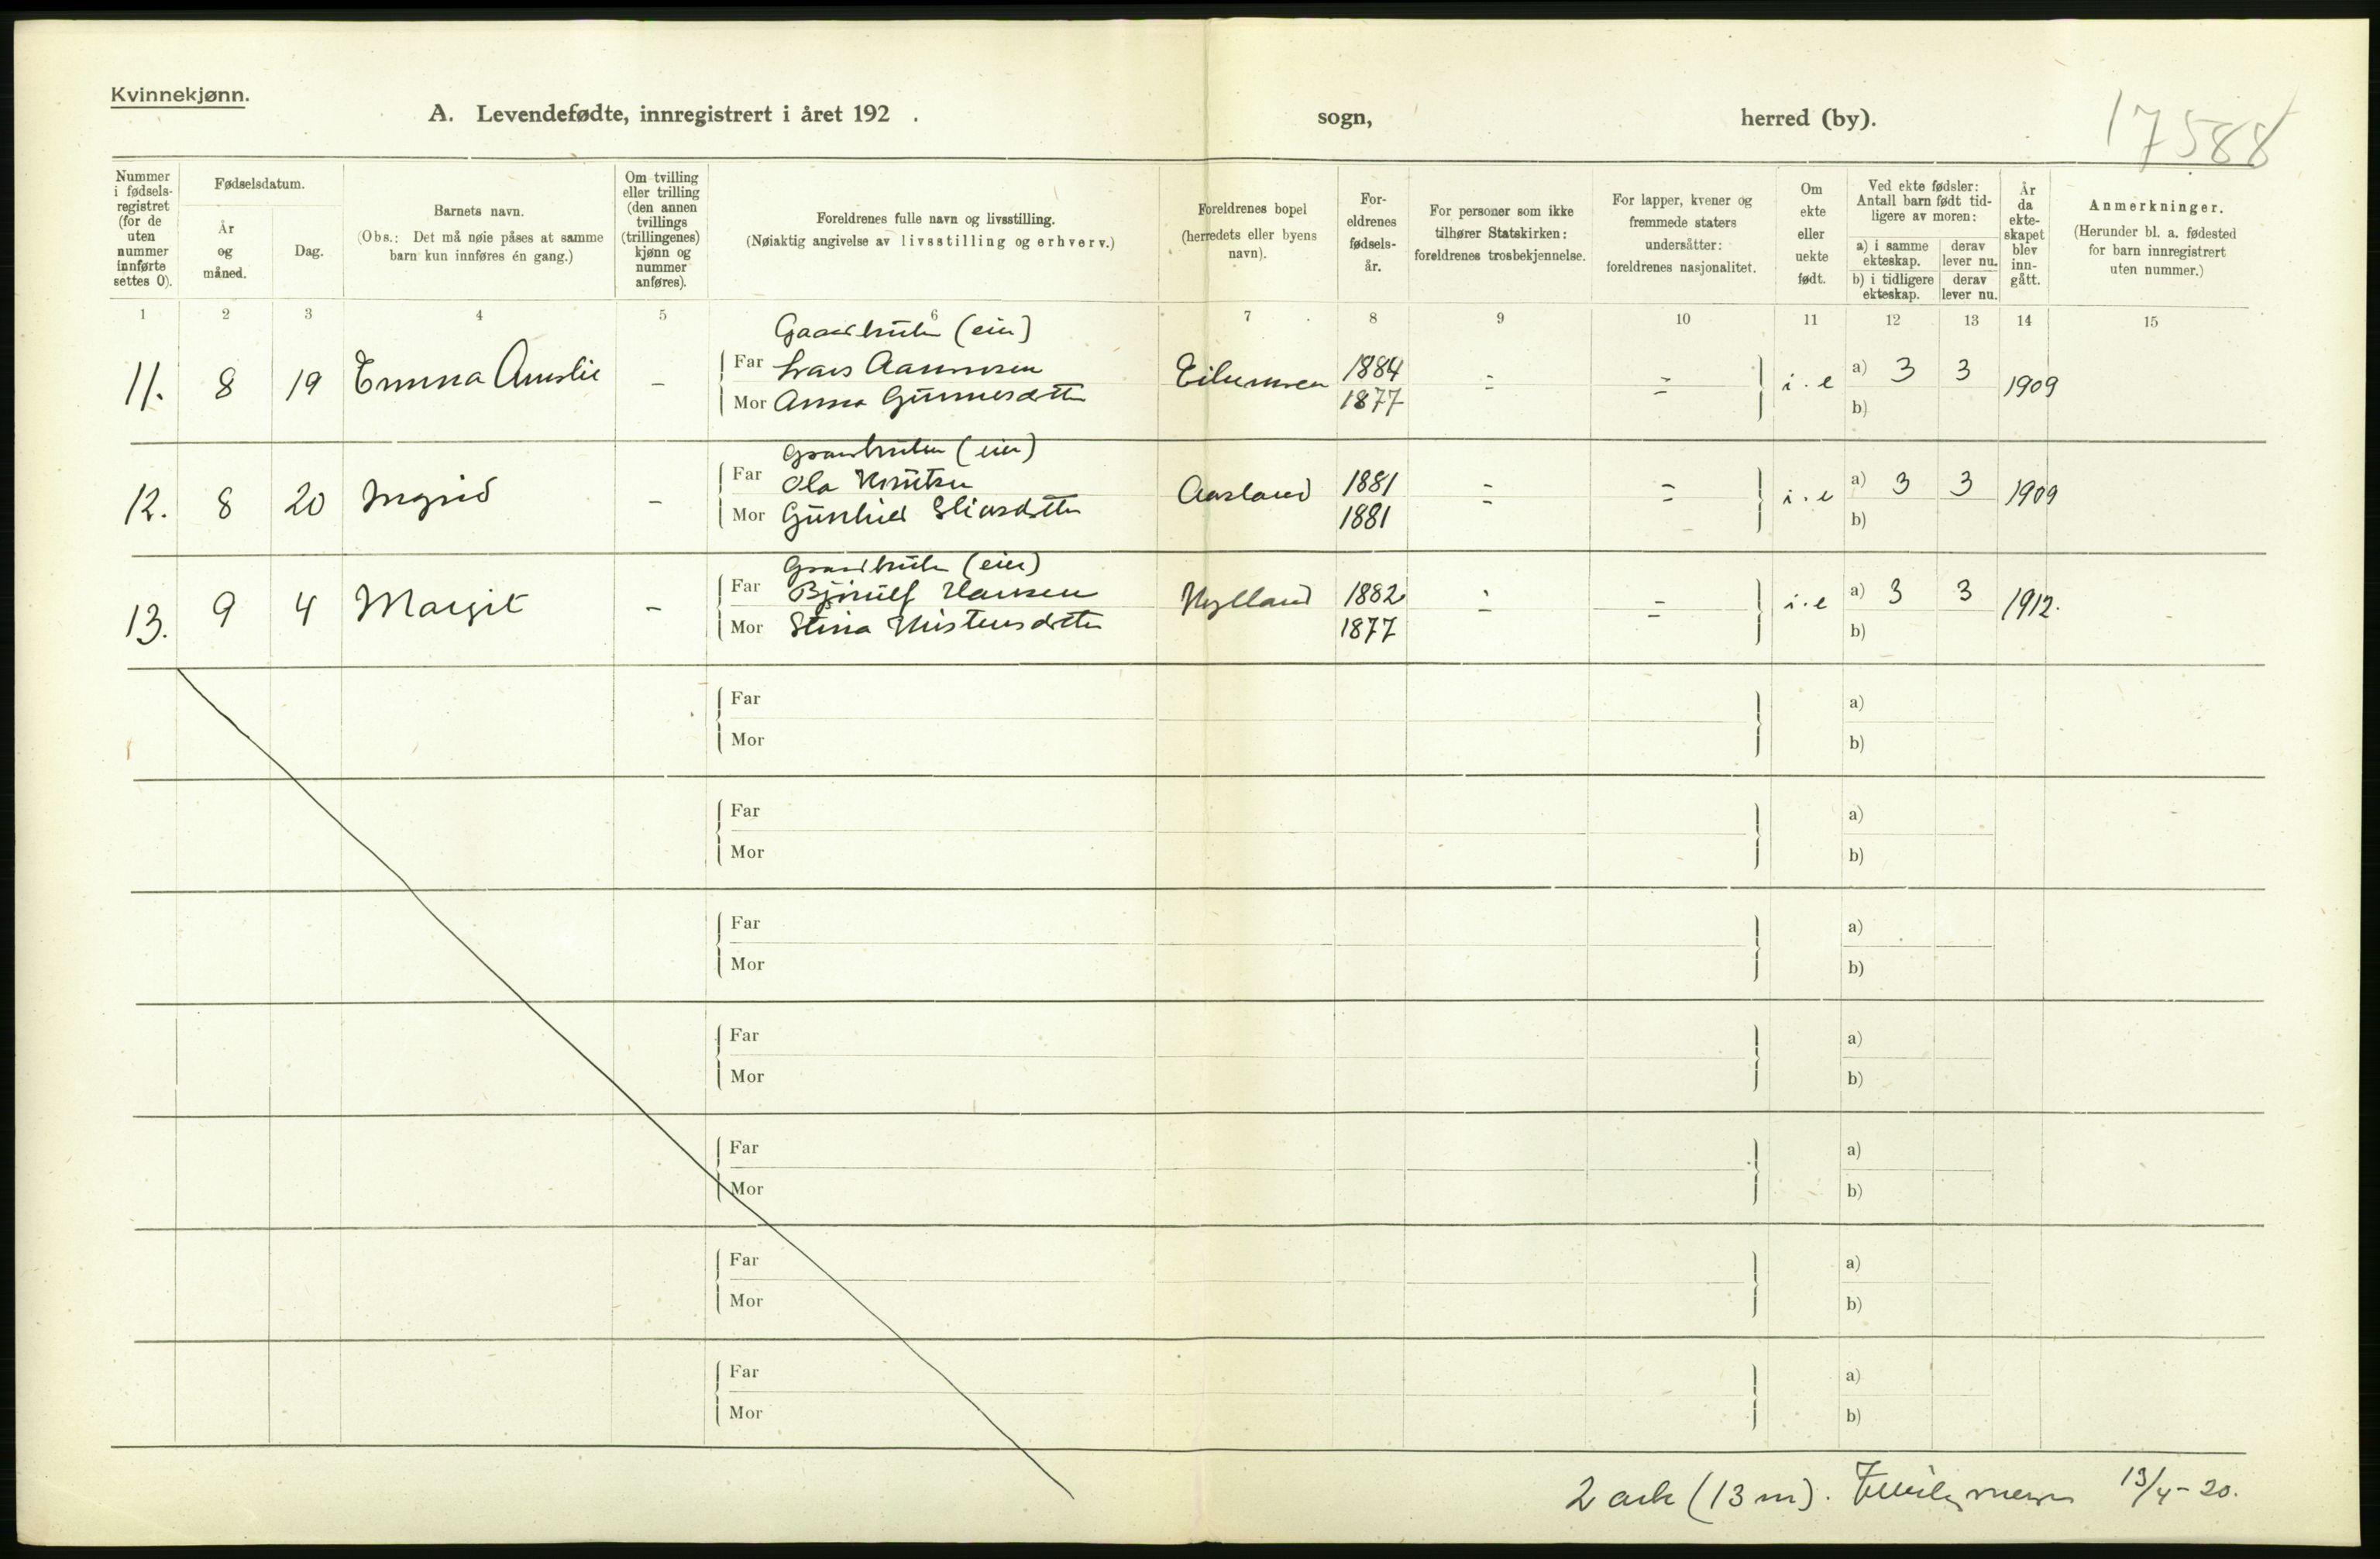 Kvinnekjønn.
A. Levendefødte, innregistrert i året 192 . sogn, herred (by).
17588
Nummer i fødsels-registret (for de uten nummer innførte settes 0).
Fødselsdatum.
År og måned.
Dag.
Barnets navn.
(Obs.: Det må nøie påses at samme barn kun innføres én gang.)
Om tvilling eller trilling (den annen tvillings (trillingenes) kjønn og nummer anføres).
Foreldrenes fulle navn og livsstilling.
(Nøiaktig angivelse av livsstilling og erhverv.)
Foreldrenes bopel (herredets eller byens navn).
For-eldrenes fødsels-år.
For personer som ikke tilhører Statskirken: foreldrenes trosbekjennelse.
For lapper, kvener og fremmede staters undersåtter: foreldrenes nasjonalitet.
Om ekte eller uekte født.
Ved ekte fødsler: Antall barn født tid-ligere av moren:
a) i samme ekteskap.
derav lever nu.
b) i tidligere ekteskap.
derav lever nu.
År da ekte-skapet blev inn-gått.
Anmerkninger.
(Herunder bl. a. fødested for barn innregistrert uten nummer.)
1 2 3 4 5 6 7 8 9 10 11 12 13 14 15
(eier)
11. 8 19 Emma Amalie - Far Lars 1884 = = i.e a) 3 3 1909
Mor Anna Gunnesdtter 1877 b)
(eier)
12. 8 20 Ingrid - Far Ola Knutsen Aasland 1881 = = i.e a) 3 3 1909
Mor Gunhild Eliasdtter 1881 b)
(eier)
13. 9 4 Margit - Far Bjørnulf Hansen Nylland 1882 = = i.e a) 3 3 1912.
Mor Stina Kristensdtter 1877 b)
Far a)
Mor b)
Far a)
Mor b)
Far a)
Mor b)
Far a)
Mor b)
Far a)
Mor b)
Far a)
Mor b)
Far a)
Mor b)
2 ark (13 m). 13/4-20.